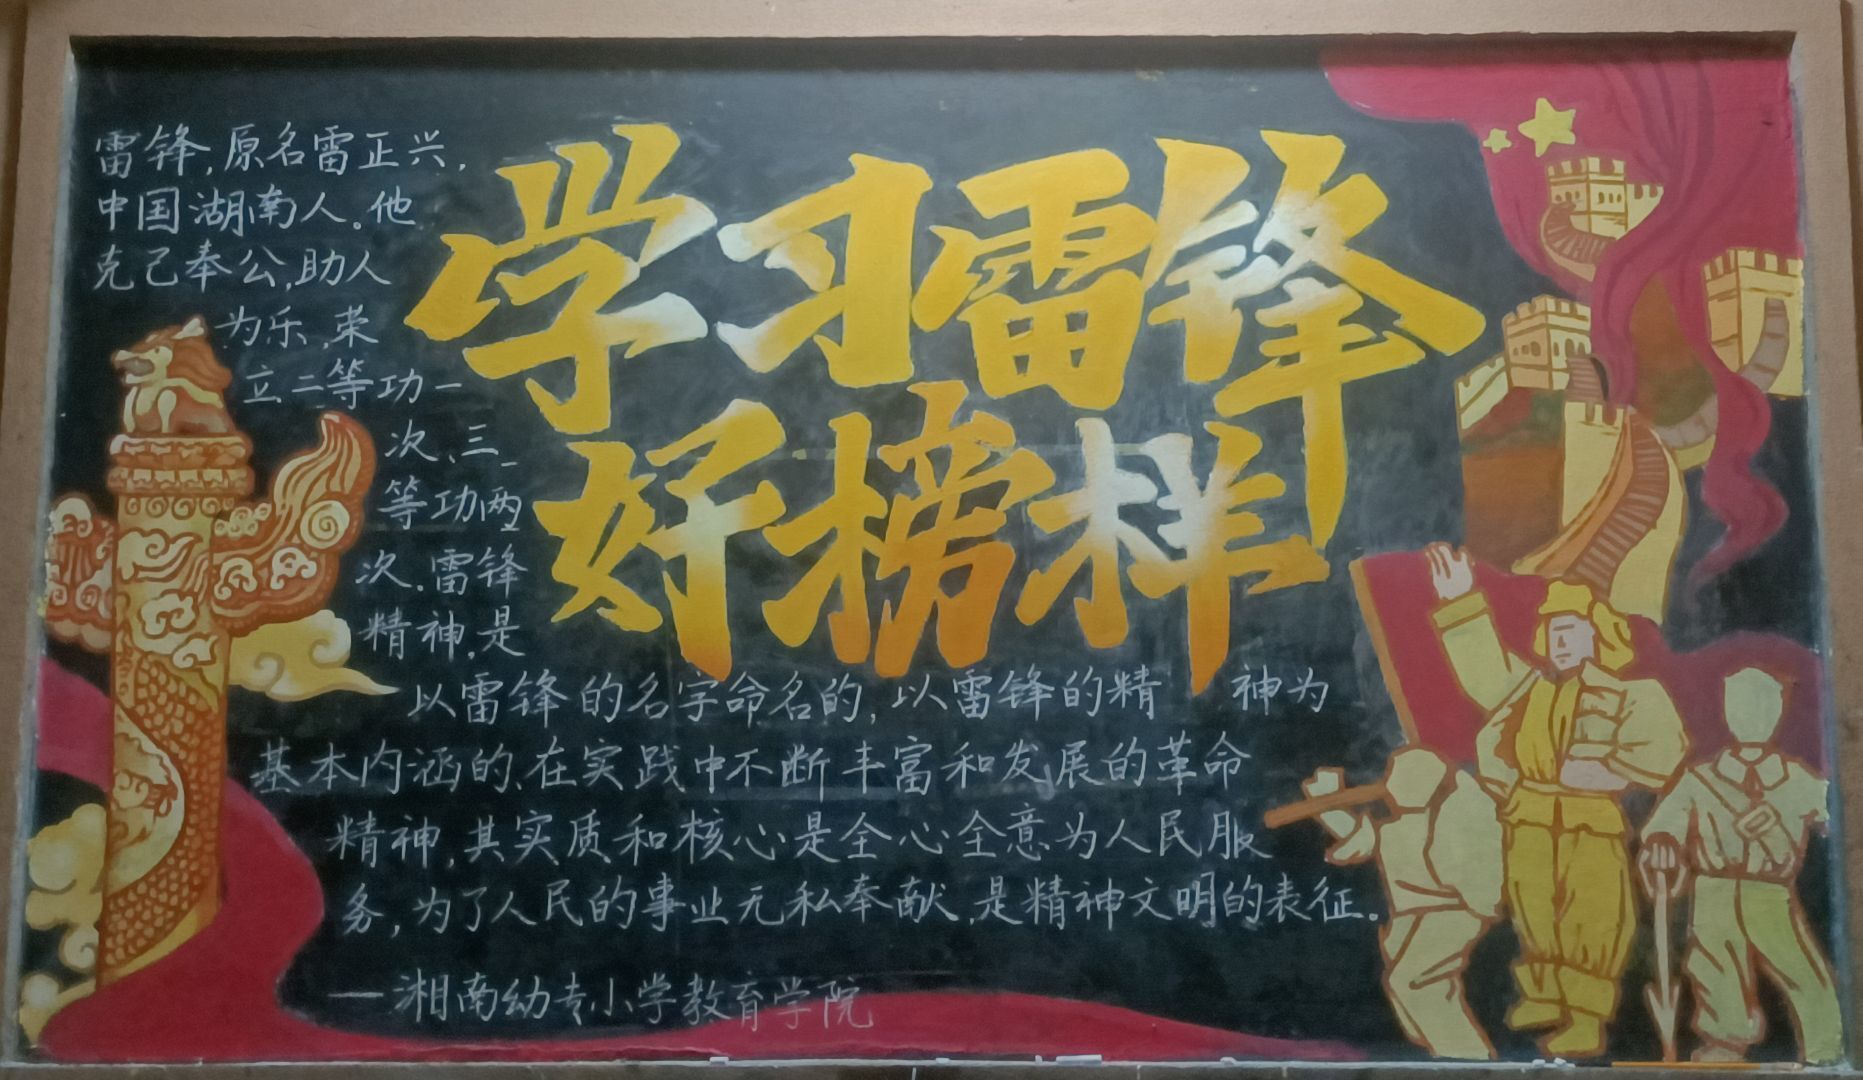 学习雷锋
好榜样
雷锋,原名雷正兴,
中国湖南人。他
克己奉公,助人
为乐,荣
立二等功一
次、三
等功两
次。雷锋
精神,是
以雷锋的名字命名的,以雷锋的精 神为
基本内涵的、在实践中不断丰富和发展的革命
精神,其实质和核心是全心全意为人民服
务,为了人民的事业无私奉献,是精神文明的表征。
—湘南幼专小学教育学院